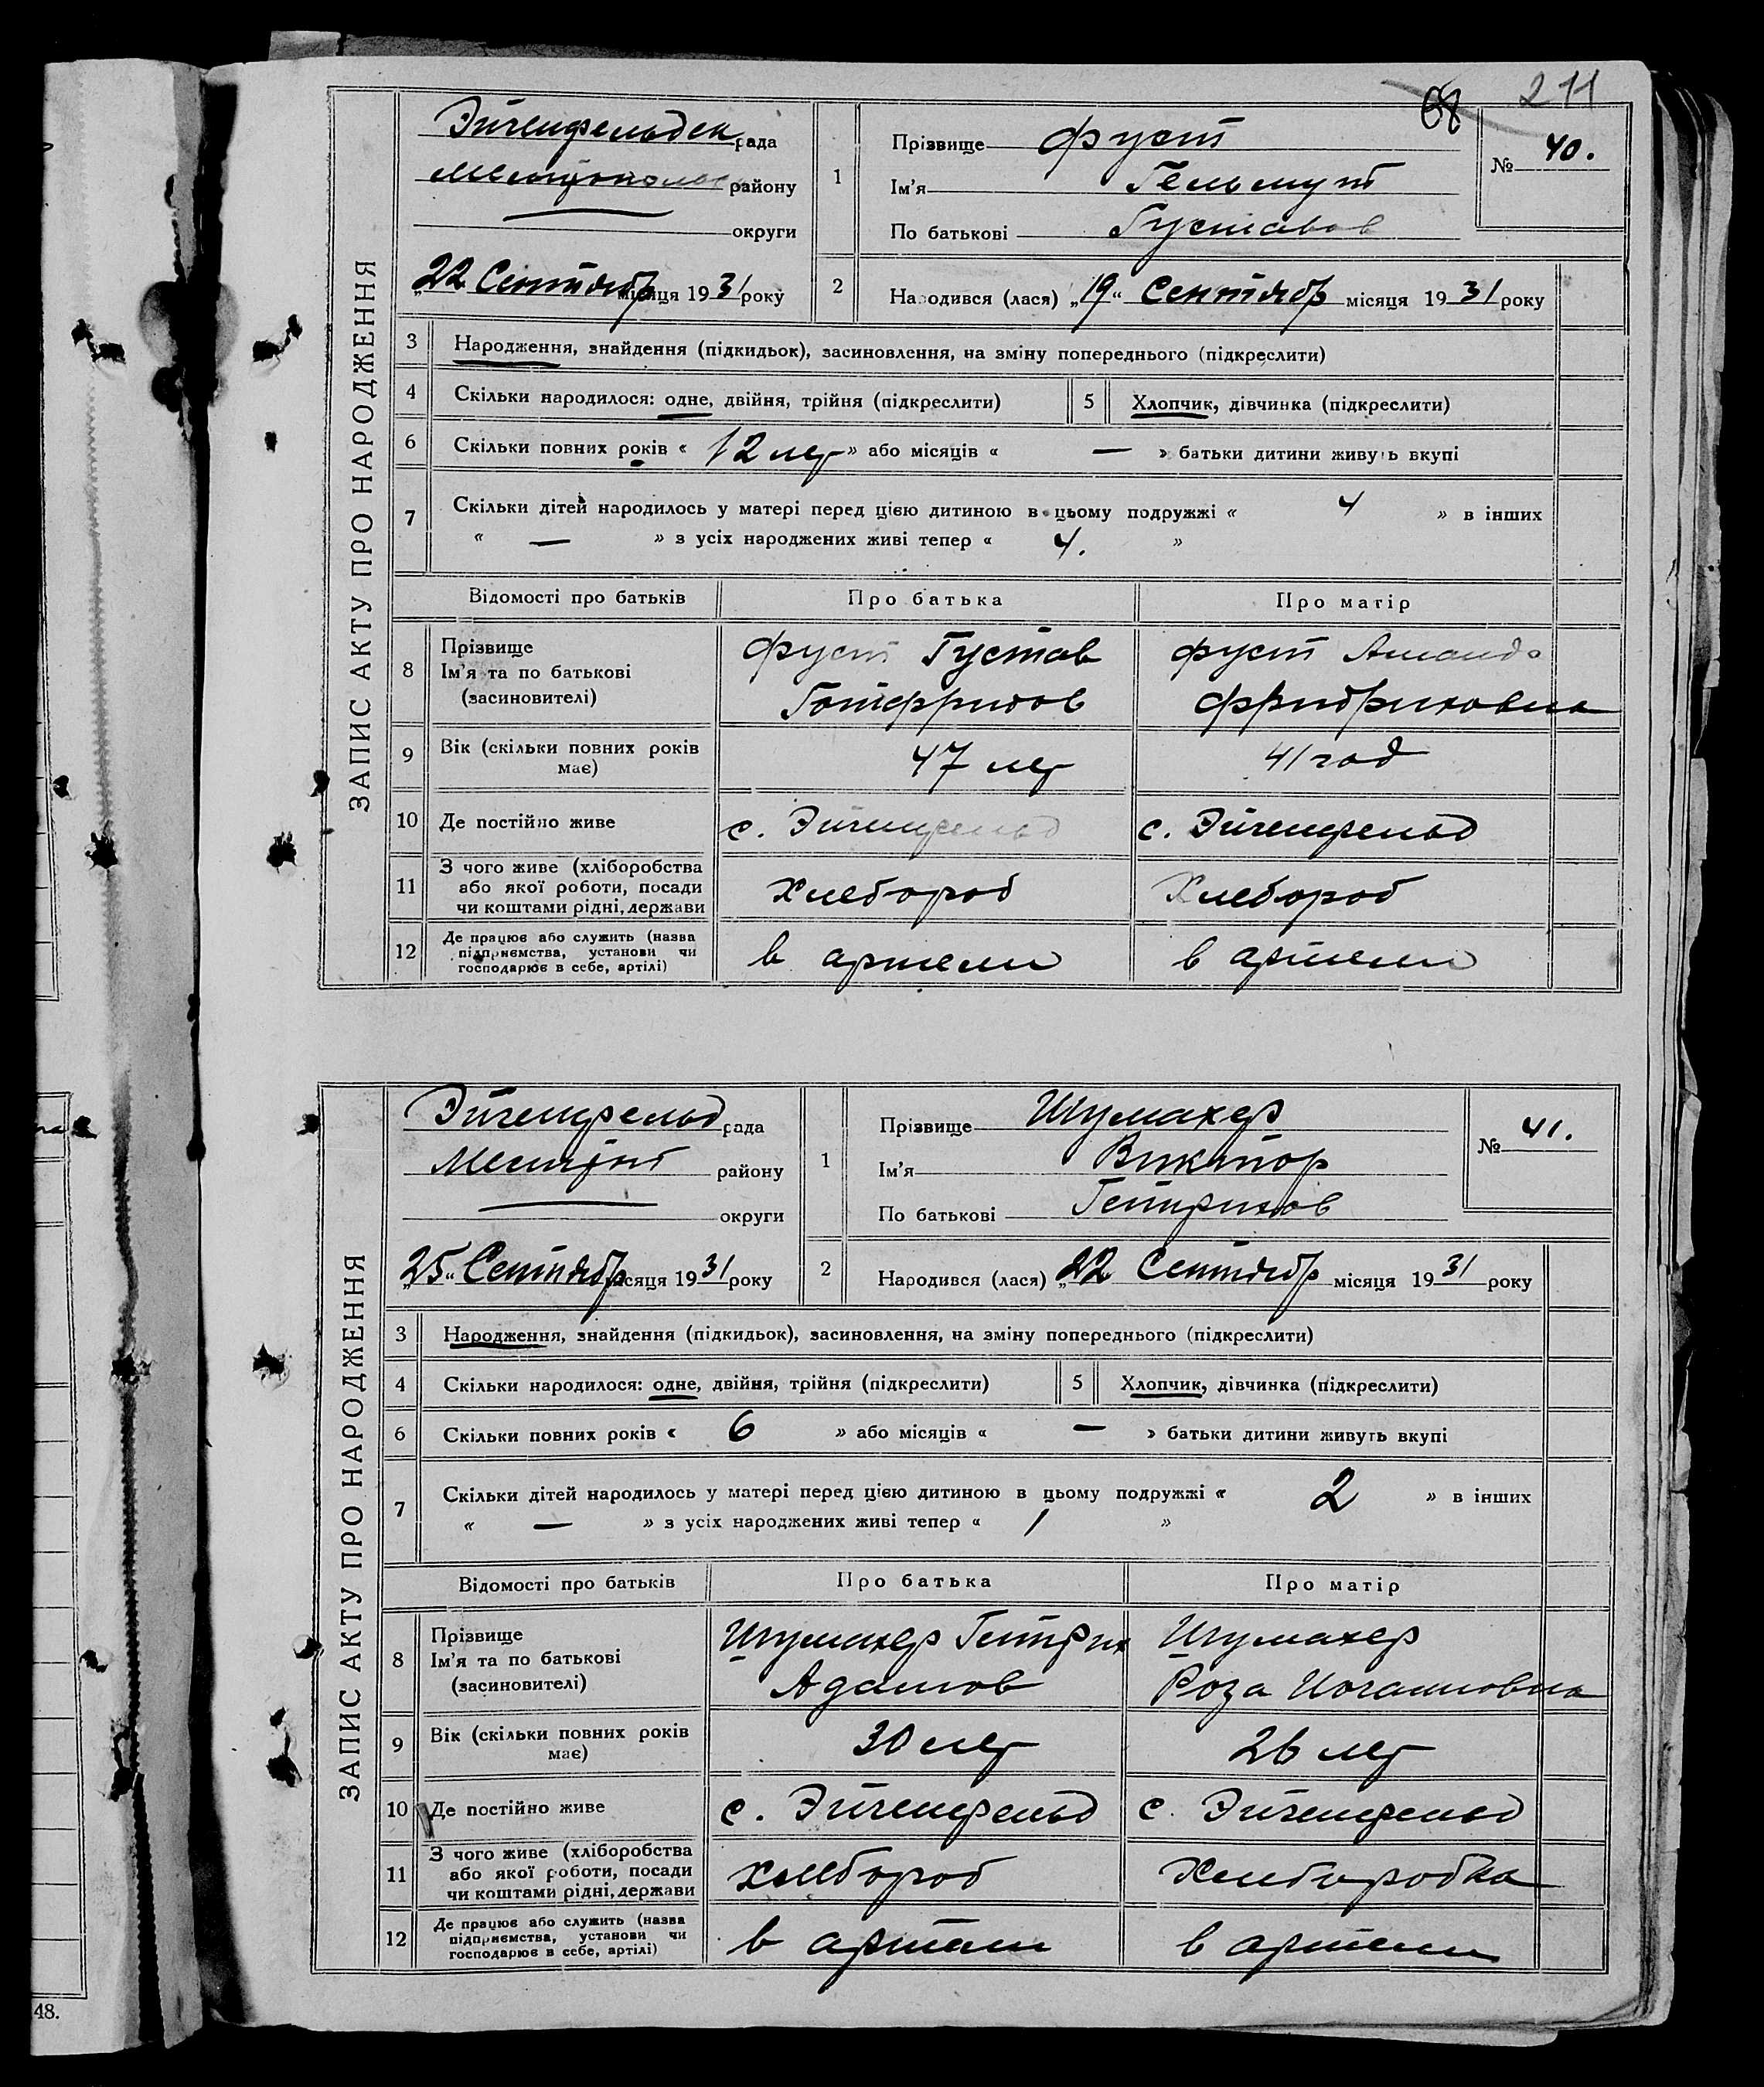 68 211
ЗАПИС АКТУ ПРО НАРОДЖЕННЯ
Эйгенфельдск рада
Мелитопольс району
округи
„22 Сентябр місяця 1931 року
1
Прізвище Фуст
Ім'я Гельмут
По батькові Густавов
№ 40.
2
Народився (лася) „19“ Сентябр місяця 1931 року
3 Народження, знайдення (підкидьок), засиновлення, на зміну попереднього (підкреслити)
4 Скільки народилося: одне, двійня, трійня (підкреслити) 5 Хлопчик, дівчинка (підкреслити)
6 Скільки повних років « 12 лет » або місяців « — » батьки дитини живуть вкупі
7 Скільки дітей народилось у матері перед цією дитиною в цьому подружжі « 4 » в інших
« — » з усіх народжених живі тепер « 4. »
Відомості про батьків Про батька Про матір
8 Прізвище
Ім'я та по батькові
(засиновителі)
Фуст Густав
Готфридов
Фуст Аманда
Фридриховна
9 Вік (скільки повних років
має)
47 лет 41 год
10 Де постійно живе с. Эйгенфельд с. Эйгенфельд
11 З чого живе (хліборобства
або якої роботи, посади
чи коштами рідні, держави
Хлебороб Хлебороб
12 Де працює або служить (назва
підприємства, установи чи
господарює в себе, артілі)
в артели в артели
ЗАПИС АКТУ ПРО НАРОДЖЕННЯ
Эйгенфельд рада
району
округи
„25“ Сентябр місяця 1931 року
1
Прізвище Шумахер
Ім'я Виктор
По батькові Гейнрихов
№ 41.
2
Народився (лася) „22 Сентябр місяця 1931 року
3 Народження, знайдення (підкидьок), засиновлення, на зміну попереднього (підкреслити)
4 Скільки народилося: одне, двійня, трійня (підкреслити) 5 Хлопчик, дівчинка (підкреслити)
6 Скільки повних років « 6 » або місяців « — » батьки дитини живуть вкупі
7 Скільки дітей народилось у матері перед цією дитиною в цьому подружжі « 2 » в інших
« — » з усіх народжених живі тепер « 1 »
Відомості про батьків Про батька Про матір
8 Прізвище
Ім'я та по батькові
(засиновителі)
Шумахер Гейнрих
Адамов
Шумахер
Роза Иоганновна
9 Вік (скільки повних років
має)
30 лет 26 лет
10 Де постійно живе с. Эйгенфельд с. Эйгенфельд
11 З чого живе (хліборобства
або якої роботи, посади
чи коштами рідні, держави
хлебороб Хлеборобка
12 Де працює або служить (назва
підприємства, установи чи
господарює в себе, артілі)
в артели в артели
48.